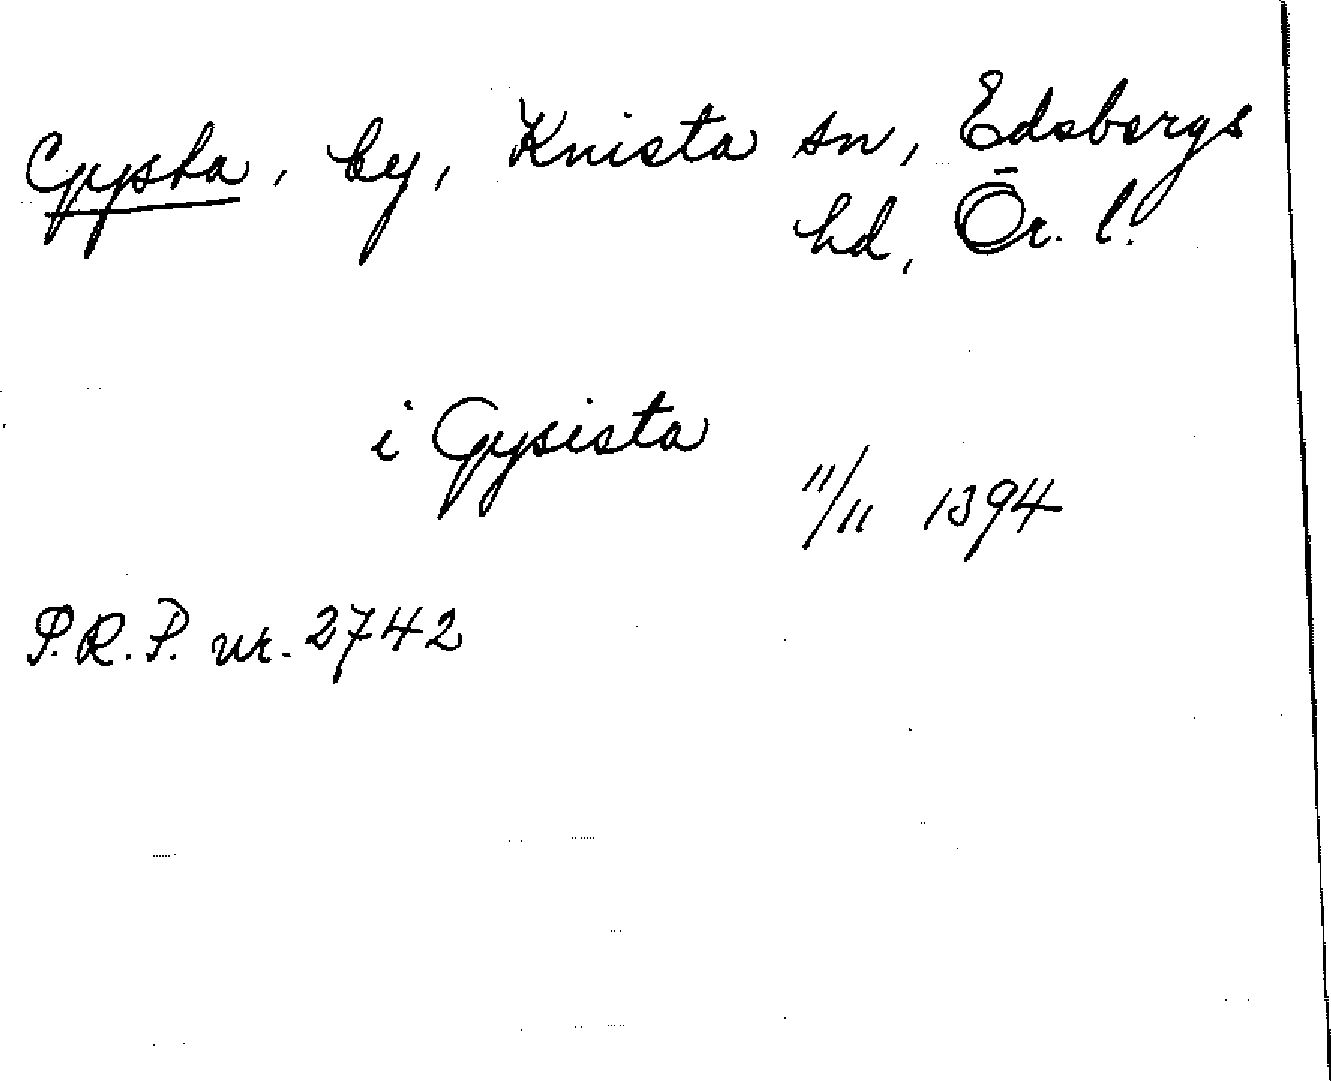 Gysta, by, Knista sn, Edsbergs
hd, Ör. l.
i Gysista
11/11 1394
P.R.P. nr. 2742